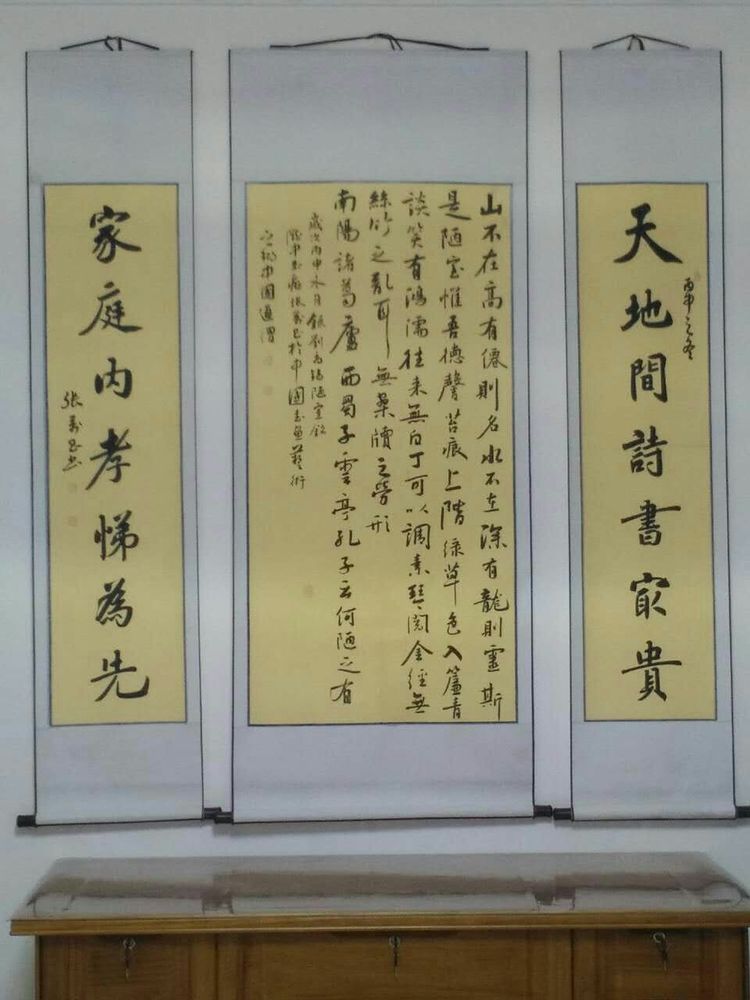 天地間詩書㝡貴
丙申之冬
山不在高有僊則名水不在深有龍則靈斯
是陋室惟吾德馨苔痕上階綠草色入簾青
談笑有鴻濡往來無白丁可以調素琴閱金經無
絲竹之亂耳無案牘之勞形
南陽諸葛廬西蜀子雲亭孔子云何陋之有
歲次丙申冬月錄劉禹錫陋室銘
於中國書画藝術
之鄉中國通渭
家庭內孝悌為先
張萬昌書